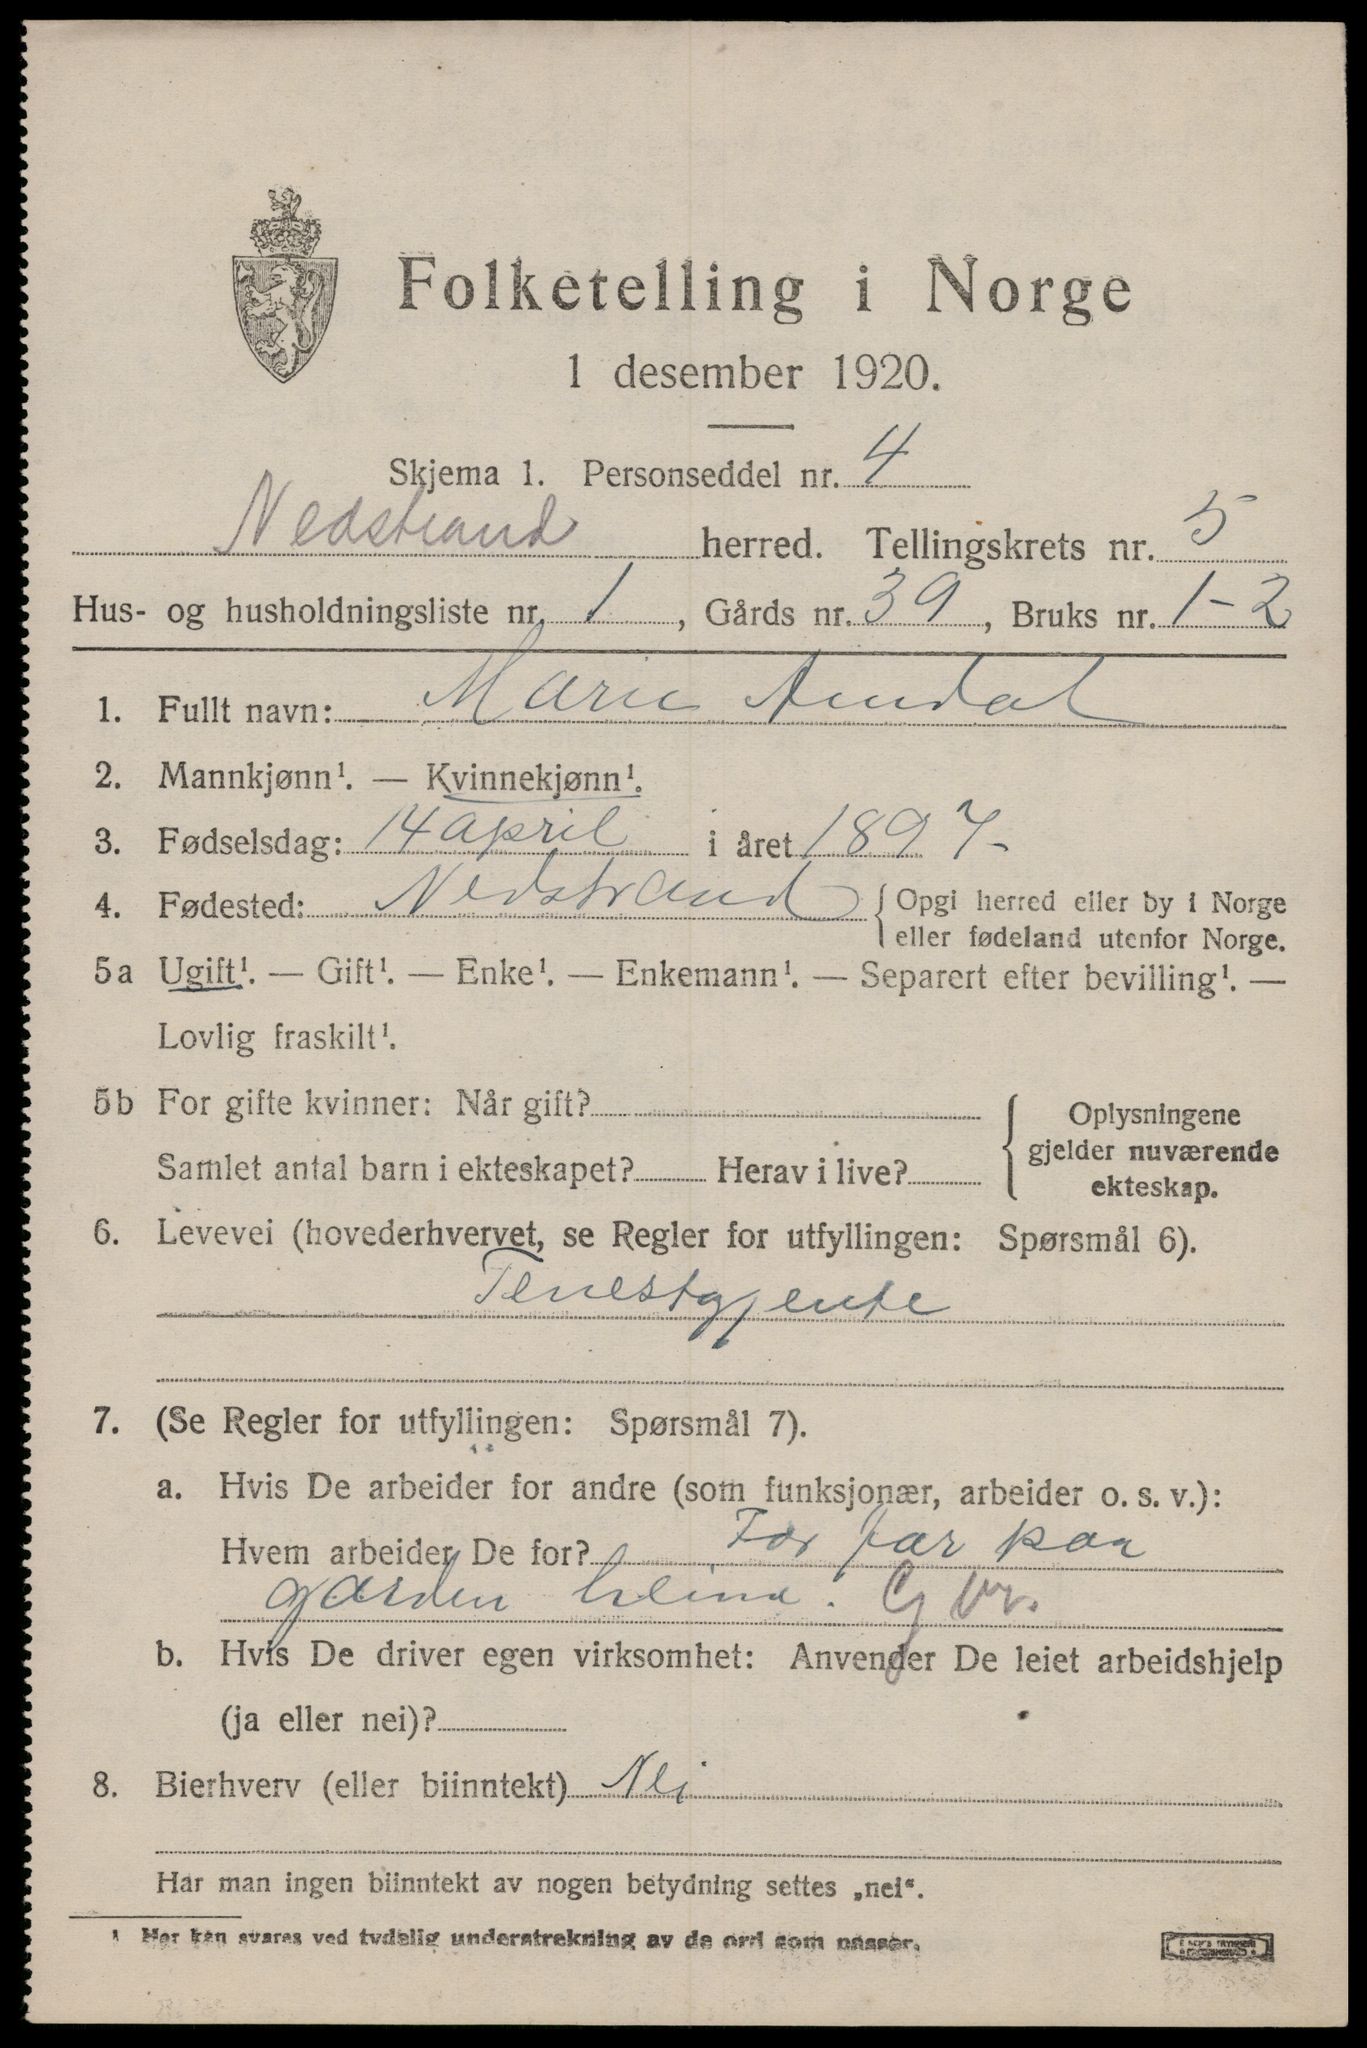 Folketelling i Norge
1 desember 1920.
Skjema 1. Personseddel nr. 4
Nedstrand herred. Tellingskrets nr. 5
Hus- og husholdningsliste nr. 1, Gårds nr. 39, Bruks nr. 1-2
1. Fullt navn: Marie Amdal
2. Mannkjønn¹. — Kvinnekjønn¹.
3. Fødselsdag: 14 april i året 1897-
4. Fødested: Nedstrand { Opgi herred eller by i Norge
eller fødeland utenfor Norge.
5a Ugift¹. — Gift¹. — Enke¹. — Enkemann¹. — Separert efter bevilling¹. —
Lovlig fraskilt¹.
5b For gifte kvinner: Når gift?
Samlet antal barn i ekteskapet? Herav i live?
Oplysningene
gjelder nuværende
ekteskap.
6. Levevei (hovederhvervet, se Regler for utfyllingen: Spørsmål 6).
Tenestgjente
7. (Se Regler for utfyllingen: Spørsmål 7).
a. Hvis De arbeider for andre (som funksjonær, arbeider o. s. v.):
Hvem arbeider De for? For far paa
garden heima. G br.
b. Hvis De driver egen virksomhet: Anvender De leiet arbeidshjelp
(ja eller nei)?
8. Bierhverv (eller biinntekt) Nei
Har man ingen biinntekt av nogen betydning settes „nei“.
¹ Her kan svares ved tydelig understrekning av de ord som passer.